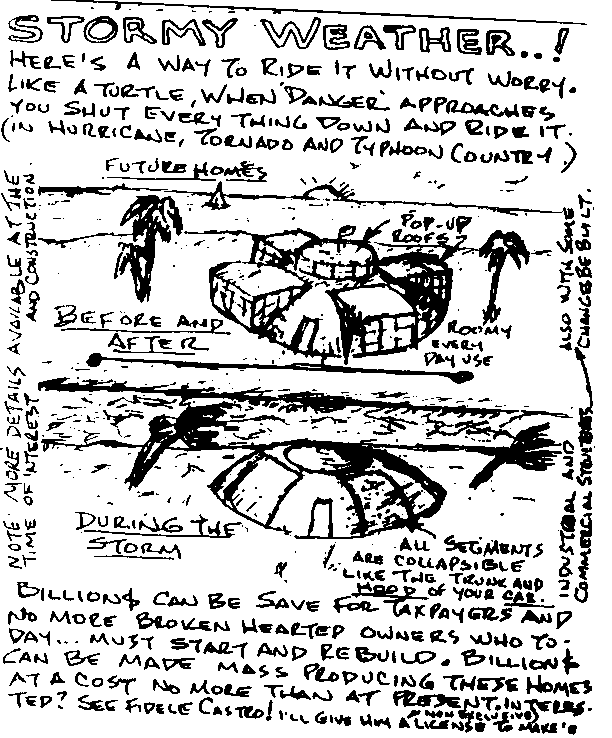 STORMY WEATHER..!
HERE'S A WAY TO RIDE IT WITHOUT WORRY.
LIKE A TURTLE, WHEN "DANGER" APPROACHES
YOU SHUT EVERY THING DOWN AND RIDE IT.
(IN HURRICANE, TORNADO AND TYPHOON COUNTRY.)
FUTURE HOMES
POP-UP
ROOFS
BEFORE AND
AFTER
ROOMY
EVERY
DAY USE
NOTE MORE DETAILS AVAILABLE AT THE
TIME OF INTEREST AND CONSTRUCTION.
ALSO WITH SOME
CHANGE BE BUILT.
INDUSTRIAL AND
COMMERCIAL STRUCTURES
DURING THE
STORM
ALL SEGMENTS
ARE COLLAPSIBLE
LIKE THE TRUNK AND
HOOD OF YOUR CAR.
BILLION$ CAN BE SAVE FOR TAXPAYERS AND
NO MORE BROKEN HEARTED OWNERS WHO TO-
DAY... MUST START AND REBUILD. BILLION$
CAN BE MADE MASS PRODUCING THESE HOMES
AT A COST NO MORE THAN AT PRESENT. INTERES-
TED? SEE FIDELE CASTRO! I'LL GIVE HIM A LICENSE TO MAKE'S
(NON EXCLUSIVE)